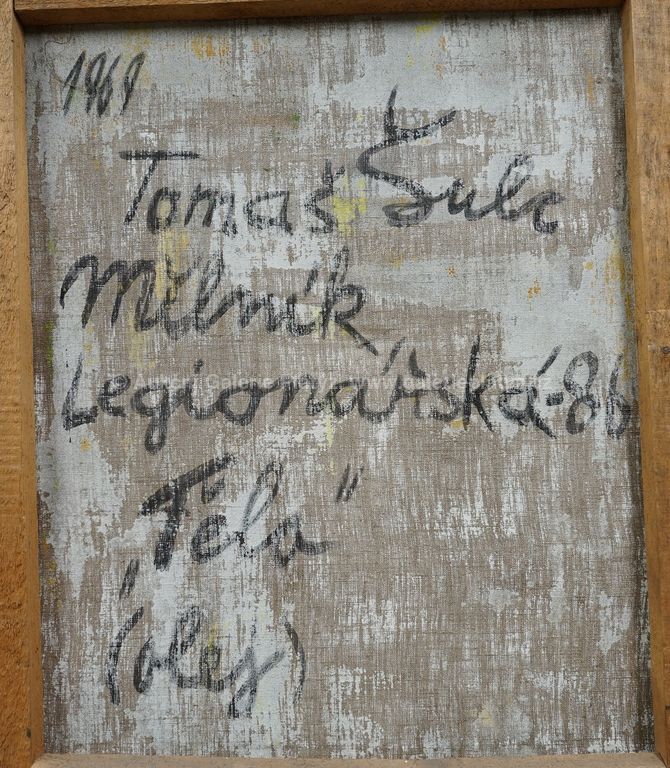 1969
Tomaš Šulc
Mělník,
Legionářská-86
„Těla"
(olej)